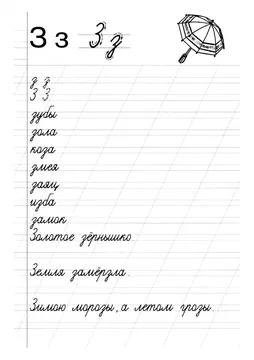 З з З з
з з
З З
зубы
зола
коза
змея
заяц
изба
замок
Золотое зёрнышко.
Земля замёрзла.
Зимою морозы, а летом грозы.